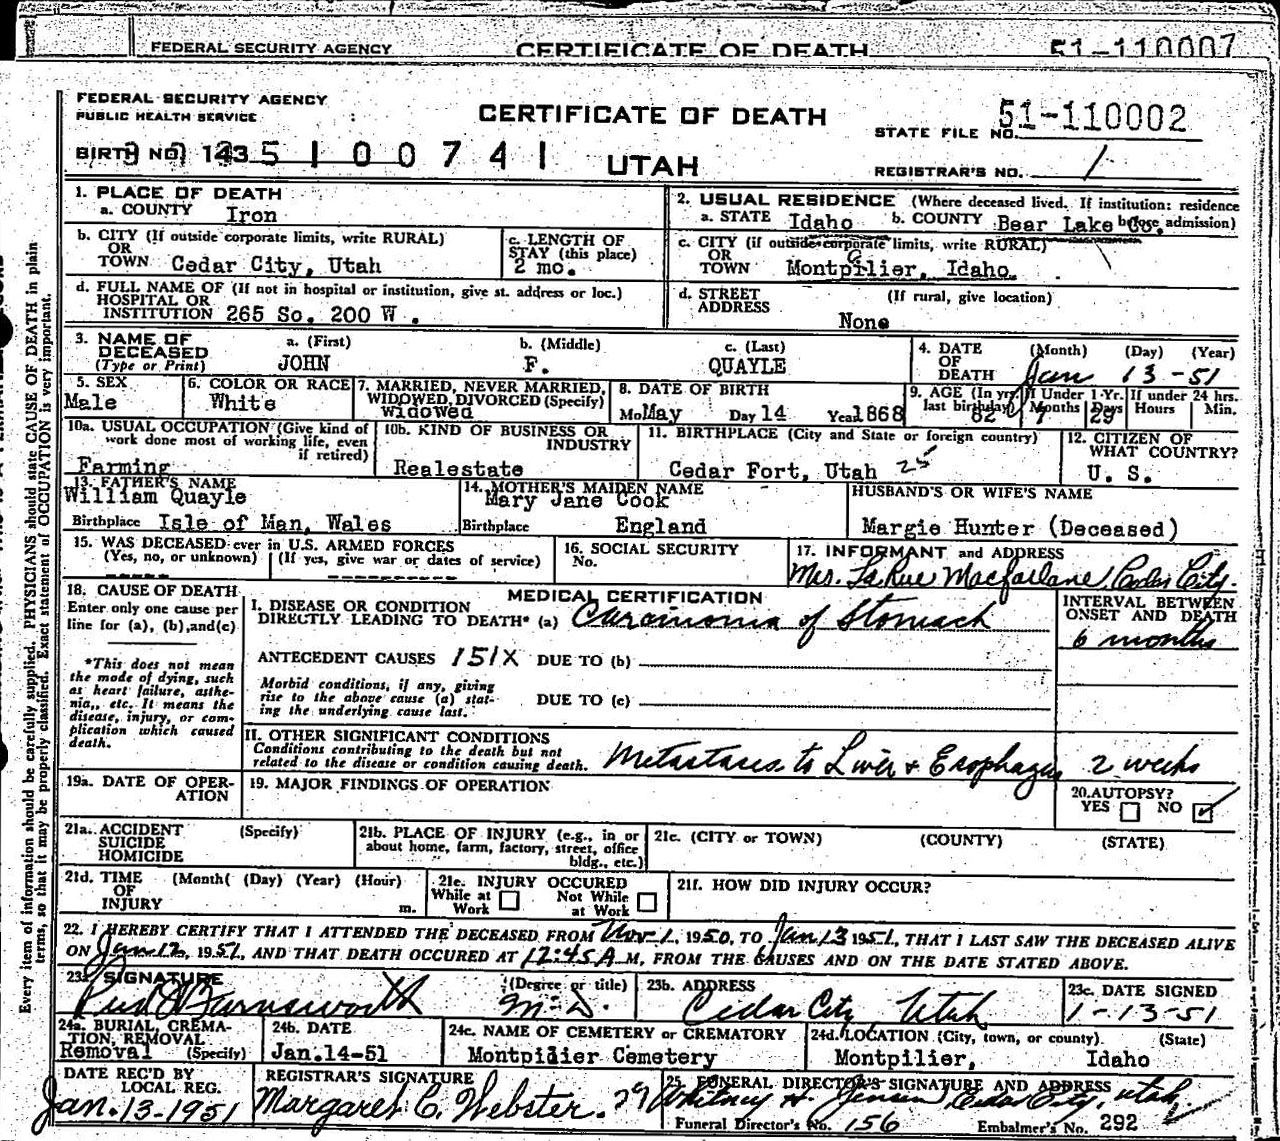 FEDERAL SECURITY AGENCY CERTIFICATE OF DEATH 51-110007
FEDERAL SECURITY AGENCY
PUBLIC HEALTH SERVICE
CERTIFICATE OF DEATH
STATE FILE NO. 51-110002
BIRTH NO. 143 5 1 0 0 7 4 1
UTAH
REGISTRAR'S NO. 1
1. PLACE OF DEATH
a. COUNTY Iron
2. USUAL RESIDENCE (Where deceased lived. If institution: residence before admission)
a. STATE Idaho b. COUNTY Bear Lake Co.
b. CITY (If outside corporate limits, write RURAL)
OR
TOWN Cedar City, Utah
c. LENGTH OF
STAY (this place)
2 mo.
c. CITY (if outside corporate limits, write RURAL)
OR
TOWN Montpilier, Idaho.
d. FULL NAME OF (If not in hospital or institution, give st. address or loc.)
HOSPITAL OR
INSTITUTION 265 So. 200 W.
d. STREET (If rural, give location)
ADDRESS
None
3. NAME OF
DECEASED
(Type or Print)
a. (First) b. (Middle) c. (Last)
JOHN F. QUAYLE
4. DATE (Month) (Day) (Year)
OF
DEATH Jan 13-51
5. SEX
Male
6. COLOR OR RACE
White
7. MARRIED, NEVER MARRIED,
WIDOWED, DIVORCED (Specify)
Widowed
8. DATE OF BIRTH
Mo May Day 14 Year 1868
9. AGE (In yrs. If Under 1 Yr. If under 24 hrs.
last birthday) Months Days Hours Min.
82 7 29
10a. USUAL OCCUPATION (Give kind of
work done most of working life, even
if retired)
Farming
10b. KIND OF BUSINESS OR
INDUSTRY
Realestate
11. BIRTHPLACE (City and State or foreign country)
Cedar Fort, Utah 25
12. CITIZEN OF
WHAT COUNTRY?
U. S.
13. FATHER'S NAME
William Quayle
Birthplace Isle of Man, Wales
14. MOTHER'S MAIDEN NAME
Mary Jane Cook
Birthplace England
HUSBAND'S OR WIFE'S NAME
Margie Hunter (Deceased)
15. WAS DECEASED ever in U.S. ARMED FORCES
(Yes, no, or unknown) (If yes, give war or dates of service)
----- ----------
16. SOCIAL SECURITY
No.
17. INFORMANT and ADDRESS
Mrs. LaRue Macfarlane, Cedar City.
18. CAUSE OF DEATH
Enter only one cause per
line for (a), (b), and (c)
*This does not mean
the mode of dying, such
as heart failure, asthe-
nia,, etc. It means the
disease, injury, or com-
plication which caused
death.
MEDICAL CERTIFICATION
I. DISEASE OR CONDITION
DIRECTLY LEADING TO DEATH* (a) Carcinoma of Stomach
INTERVAL BETWEEN
ONSET AND DEATH
6 months
ANTECEDENT CAUSES 151X DUE TO (b)
Morbid conditions, if any, giving
rise to the above cause (a) stat-
ing the underlying cause last.
DUE TO (c)
II. OTHER SIGNIFICANT CONDITIONS
Conditions contributing to the death but not
related to the disease or condition causing death.
Metastases to Liver & Esophagus 2 weeks
19a. DATE OF OPER-
ATION
19. MAJOR FINDINGS OF OPERATION
20. AUTOPSY?
YES NO ✓
21a. ACCIDENT (Specify)
SUICIDE
HOMICIDE
21b. PLACE OF INJURY (e.g., in or
about home, farm, factory, street, office
bldg., etc.)
21c. (CITY or TOWN) (COUNTY) (STATE)
21d. TIME (Month( (Day) (Year) (Hour)
OF
INJURY m.
21e. INJURY OCCURED
While at Not While
Work at Work
21f. HOW DID INJURY OCCUR?
22. I HEREBY CERTIFY THAT I ATTENDED THE DECEASED FROM Nov 1, 1950, TO Jan 13 1951, THAT I LAST SAW THE DECEASED ALIVE
ON Jan 12, 1951, AND THAT DEATH OCCURED AT 12:45A M, FROM THE CAUSES AND ON THE DATE STATED ABOVE.
23a SIGNATURE (Degree or title)
Farnsworth M.D.
23b. ADDRESS
Cedar City Utah
23c. DATE SIGNED
1-13-51
24a. BURIAL, CREMA-
TION, REMOVAL
Removal (Specify)
24b. DATE
Jan.14-51
24c. NAME OF CEMETERY OR CREMATORY
Montpilier Cemetery
24d. LOCATION (City, town, or county). (State)
Montpilier, Idaho
DATE REC'D BY
LOCAL REG.
Jan. 13-1951
REGISTRAR'S SIGNATURE
Margaret C. Webster. 29
25. FUNERAL DIRECTOR'S SIGNATURE AND ADDRESS
Whitney H. Jensen, Cedar City, Utah.
Funeral Director's No. 156 Embalmer's No. 292
Every item of information should be carefully supplied. PHYSICIANS should state CAUSE OF DEATH in plain
terms, so that it may be properly classified. Exact statement of OCCUPATION is very important.